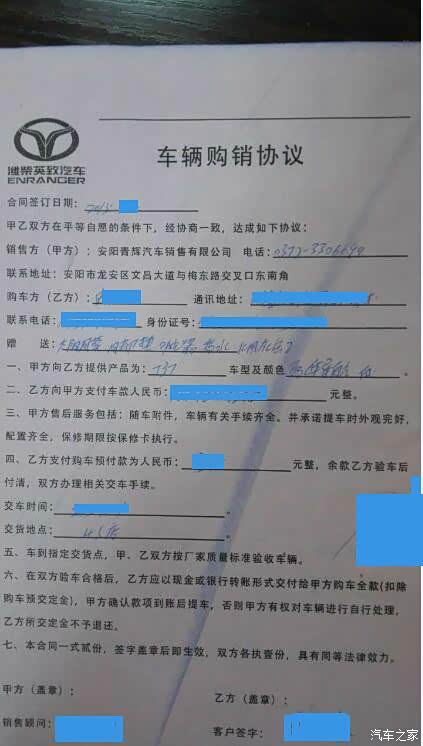 潍柴英致汽车
ENRANGER
车辆购销协议
合同签订日期：
甲乙双方在平等自愿的条件下，经协商一致，达成如下协议：
销售方（甲方）：安阳青辉汽车销售有限公司 电话：0372-
联系地址：安阳市龙安区文昌大道与梅东路交叉口东南角
购车方（乙方）： 通讯地址：
联系电话： 身份证号：
赠 送：
一、甲方向乙方提供产品为：737 车型及颜色 白
二、乙方向甲方支付车款人民币： 元整。
三、甲方售后服务包括：随车附件，车辆有关手续齐全。并承诺提车时外观完好，
配置齐全，保修期限按保修卡执行。
四、乙方支付购车预付款为人民币： 元整，余款乙方验车后
付清，双方办理相关交车手续。
交车时间： 。
交货地点：4S店 。
五、车到指定交货点，甲、乙双方按厂家质量标准验收车辆。
六、在双方验车合格后，乙方应以现金或银行转账形式交付给甲方购车全款(扣除
购车预交定金)，甲方确认款项到账后提车，否则甲方有权对车辆进行自行处理，
乙方所交定金不予退还。
七、本合同一式贰份，签字盖章后即生效，双方各执壹份，具有同等法律效力。
甲方（盖章）： 乙方（盖章）：
销售顾问： 客户签字：
汽车之家